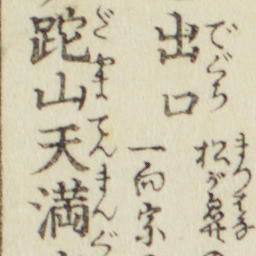 でぐち
出口
まつがはな
松が鼻
一向宗
どやまてんまんぐ
跎山天満